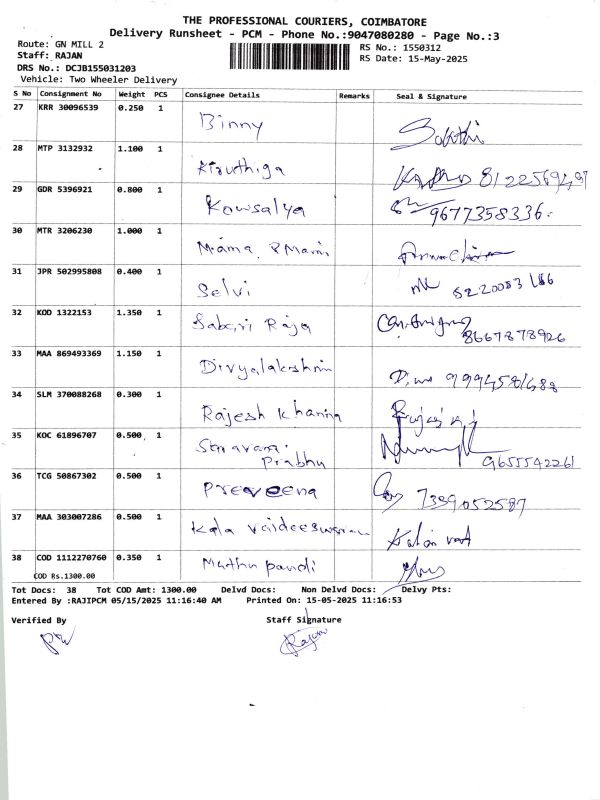 THE PROFESSIONAL COURIERS, COIMBATORE
Delivery Runsheet - PCM - Phone No.:9047080280 - Page No.:3
Route: GN MILL 2
Staff: RAJAN
RS No.: 1550312
RS Date: 15-May-2025
DRS No.: DCJB155031203
Vehicle: Two Wheeler Delivery
S No Consignment No Weight PCS Consignee Details Remarks Seal & Signature
27 KRR 30096539 0.250 1 Binny Sakthi
28 MTP 3132932 1.100 1 Kiruthiga
29 GDR 5396921 0.800 1 Kowsalya 9677358336.
30 MTR 3206230 1.000 1 Mama
31 JPR 502995808 0.400 1 Selvi
32 KOD 1322153 1.350 1 Sabari Raja 8667878926
33 MAA 869493369 1.150 1 Divyalakshmi
34 SLM 370088268 0.300 1 Rajesh Khanna
35 KOC 61896707 0.500 1 Prabhu 9655542261
36 TCG 50867302 0.500 1 Preveena 7339052587
37 MAA 303007286 0.500 1 Kala Vaideeswaran
38 COD 1112270760 0.350 1 Muthu pandi
COD Rs.1300.00
Tot Docs: 38 Tot COD Amt: 1300.00 Delvd Docs: Non Delvd Docs: Delvy Pts:
Entered By :RAJIPCM 05/15/2025 11:16:40 AM Printed On: 15-05-2025 11:16:53
Verified By Staff Signature
Rajan